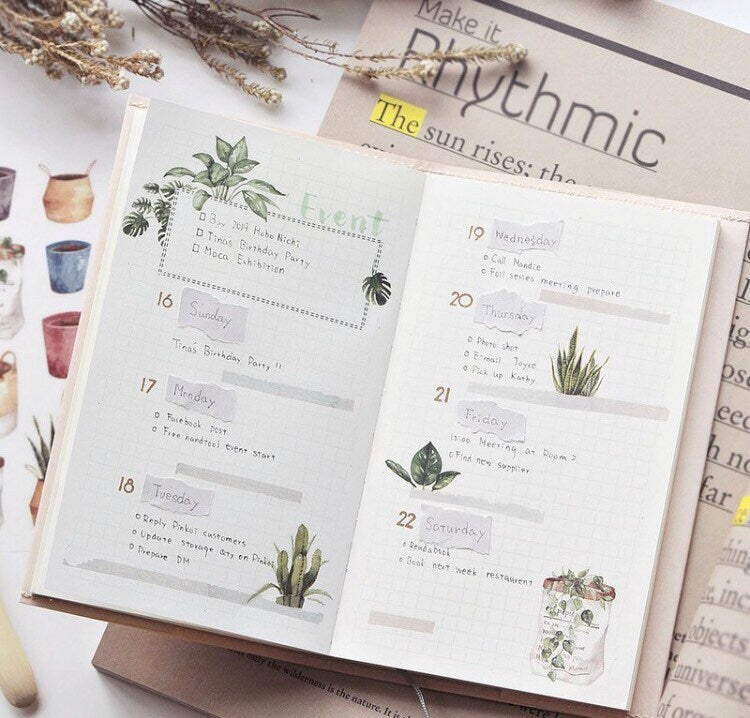 Make it
Rhythmic
The sun rises; the
Event
Buy 2019 Hobo Nichi
Tina's Birthday Party
Moca Exhibition
16
Sunday
Tina's Birthday Party !!
17
Monday
Facebook post
Free handtool event start
18
Tuesday
Reply Pinkoi customers
Update storage qty on Pinkoi
Prepare DM
19
Wednesday
Call Mandie
Foil series meeting prepare
20
Thursday
Photo shot
E-mail Joyce
Pick up Kathy
21
Friday
10:00 Meeting at Room 2
Find new supplier
22
Saturday
Read a book
Book next week restaurant
far
objects
universe
that only the wilderness is the nature. It is